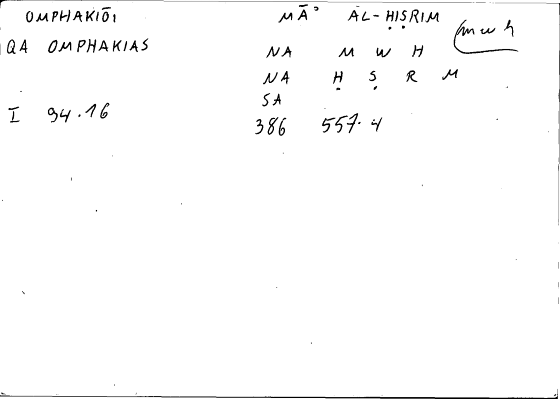 OMPHAKIŌI MĀʾ AL-ḤIṢRIM
mwh
QA OMPHAKIAS NA M W H
NA Ḥ Ṣ R M
SA
I 94.16 386 557.4